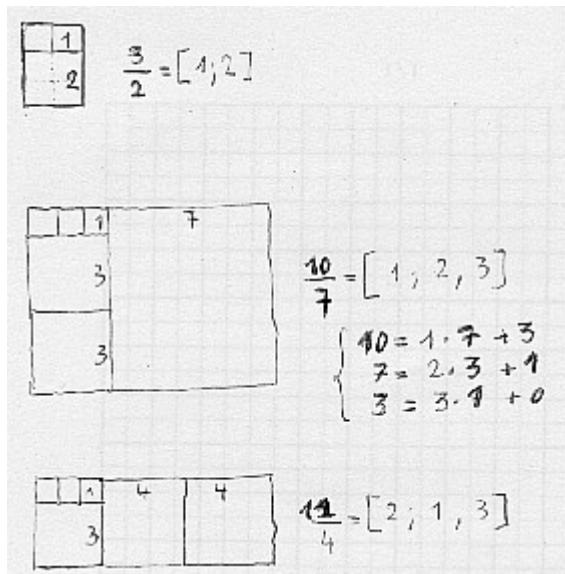 1
2
3/2 = [1; 2]
1 7
3
3
10/7 = [1; 2, 3]
10 = 1 · 7 + 3
7 = 2 · 3 + 1
3 = 3 · 1 + 0
1 4 4
3
11/4 = [2; 1, 3]